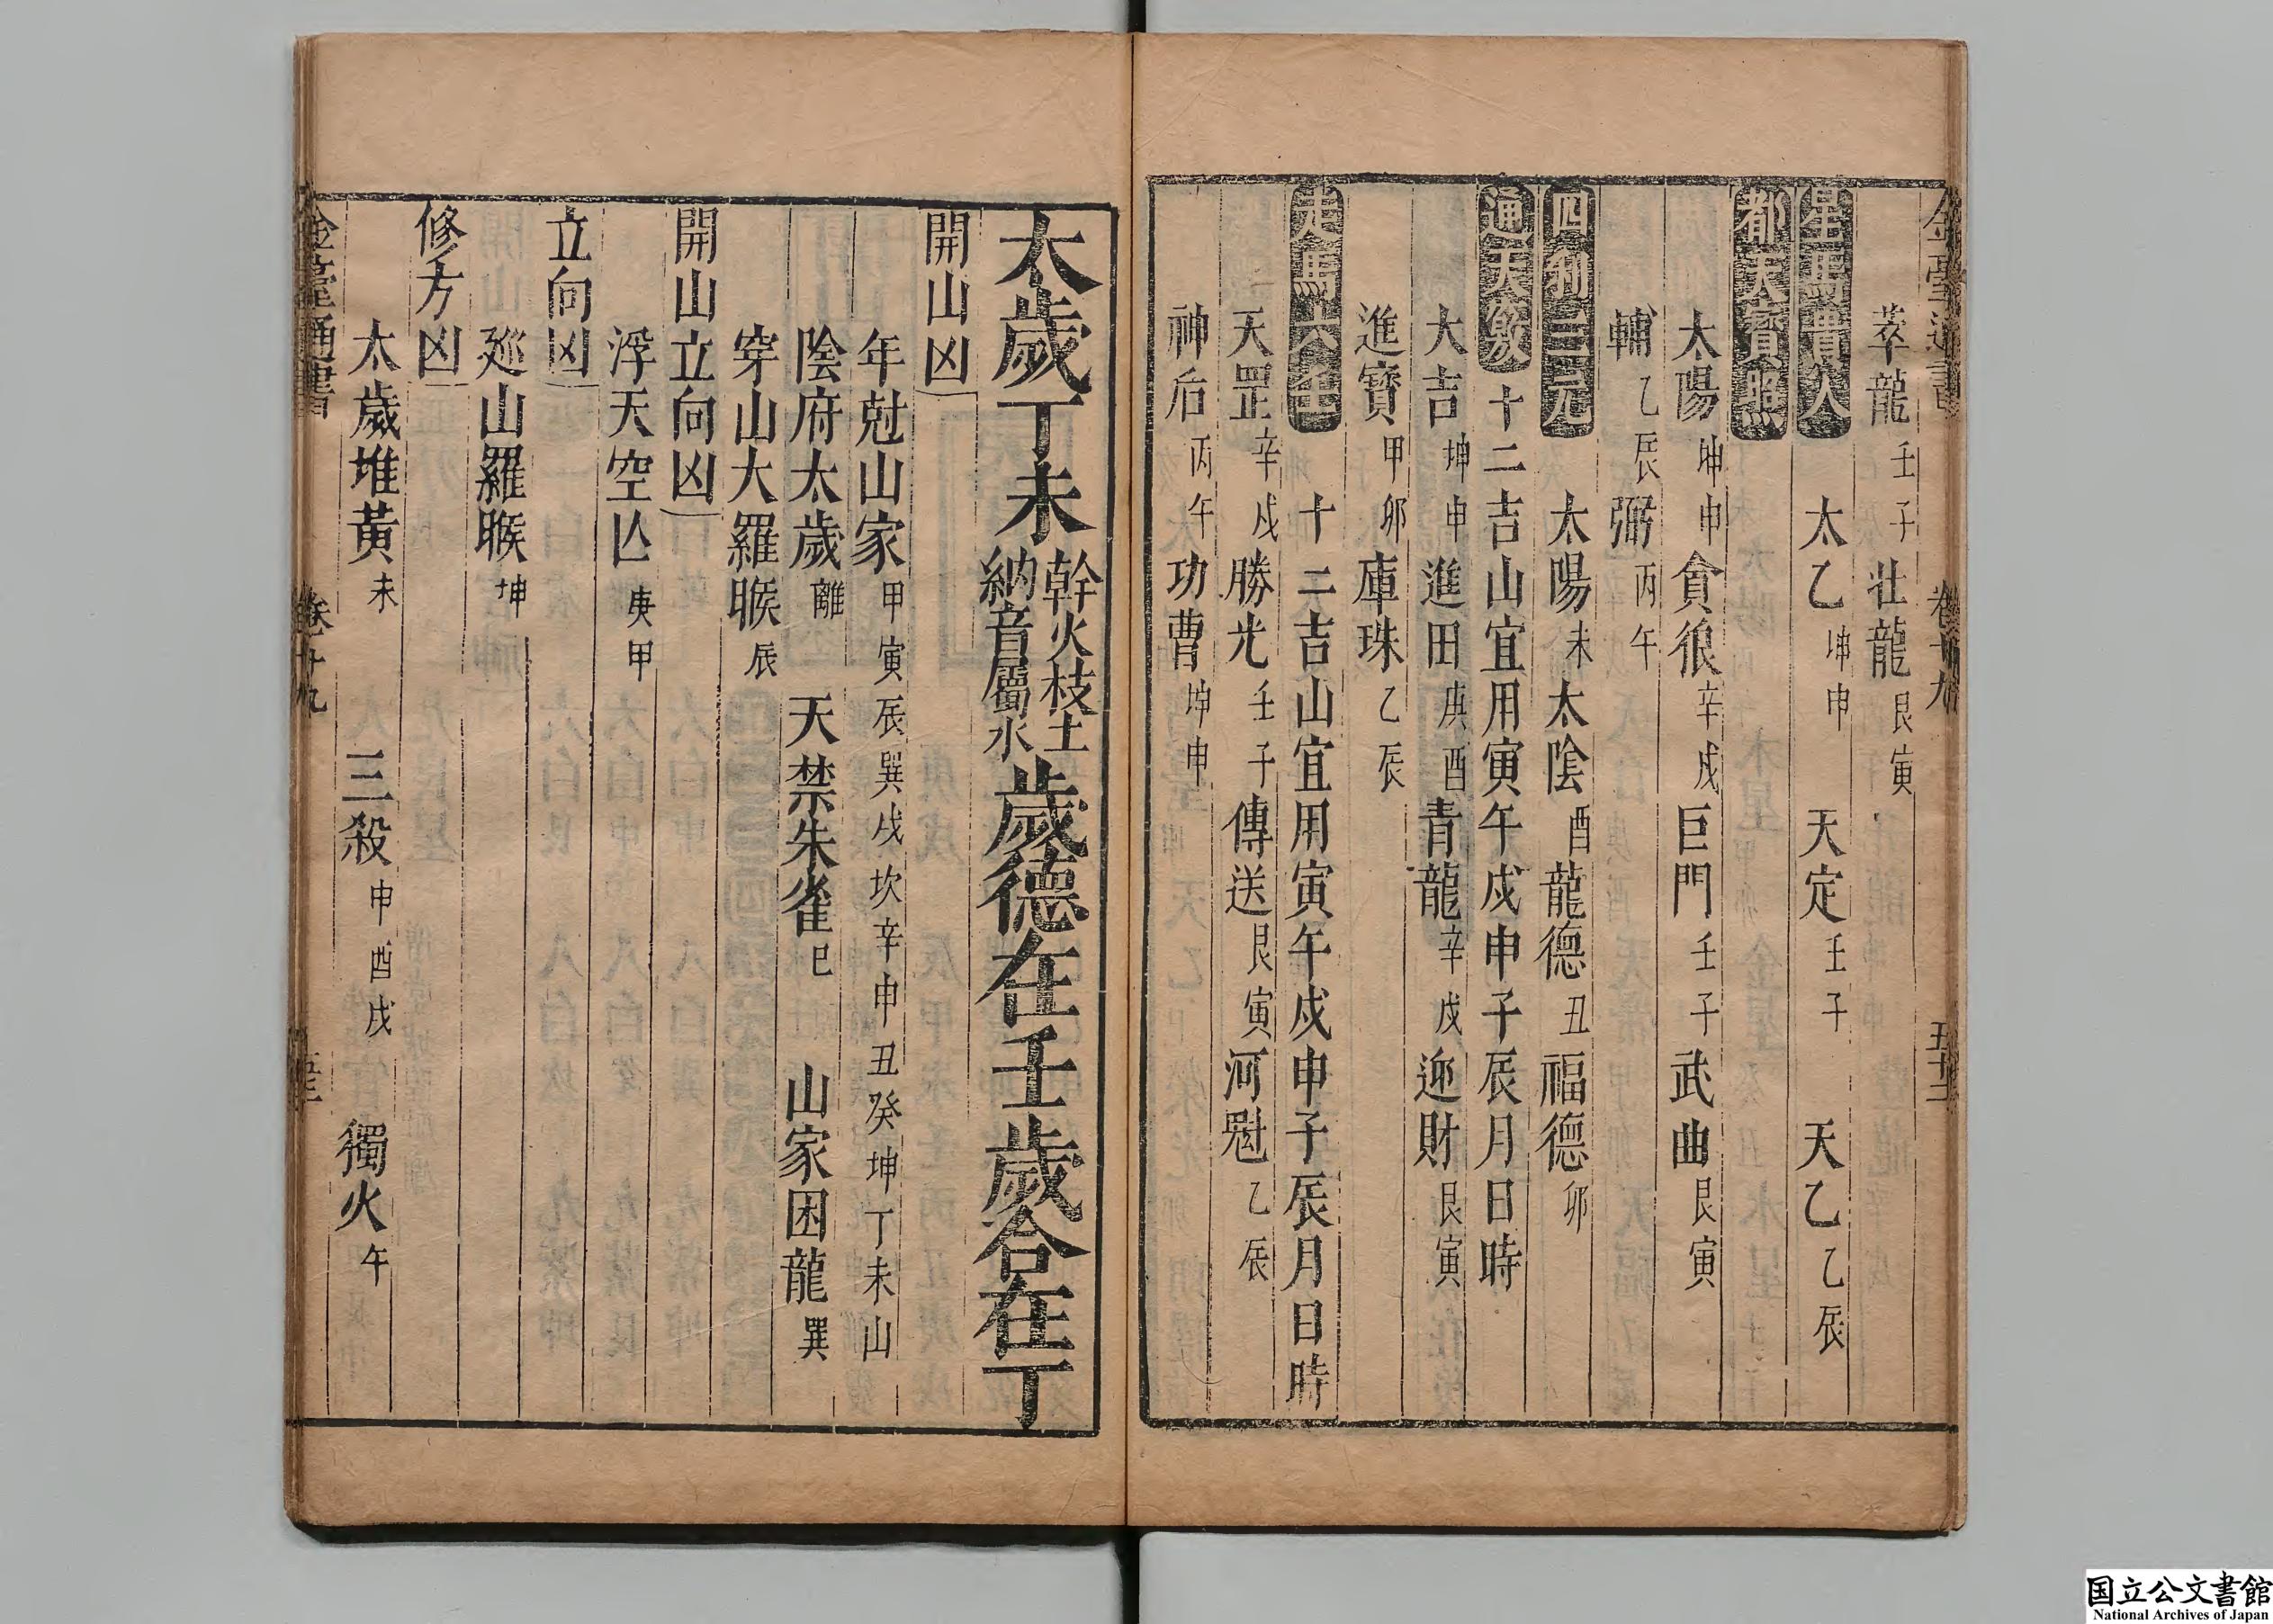 金臺通書 卷十九
萃龍壬子 壯龍艮寅
星馬貴人 太乙坤申 天定壬子 天乙乙辰
都天寶照
太陽坤申 貪狼辛戌 巨門壬子 武曲艮寅
輔乙辰 弼丙午
四利三元 太陽未 太陰酉 龍德丑 福德卯
通天竅 十二吉山宜用寅午戌申子辰月日時
大吉坤申 進田庚酉 青龍辛戌 迎財艮寅
進寶甲卯 庫珠乙辰
走馬六壬 十二吉山宜用寅午戌申子辰月日時
天罡辛戌 勝光壬子 傳送艮寅 河魁乙辰
神后丙午 功曹坤申
太歲丁未 幹火枝土 納音屬水 歲德在壬歲合在丁
開山凶
年尅山家甲寅辰巽戌坎辛申丑癸坤丁未山
陰府太歲離 天禁朱雀巳 山家困龍巽
穿山大羅睺辰
開山立向凶
浮天空亾庚甲
立向凶
廵山羅睺坤
修方凶
太歲堆黃未 三殺申酉戌 獨火午
金臺通書 卷十九
国立公文書館
National Archives of Japan